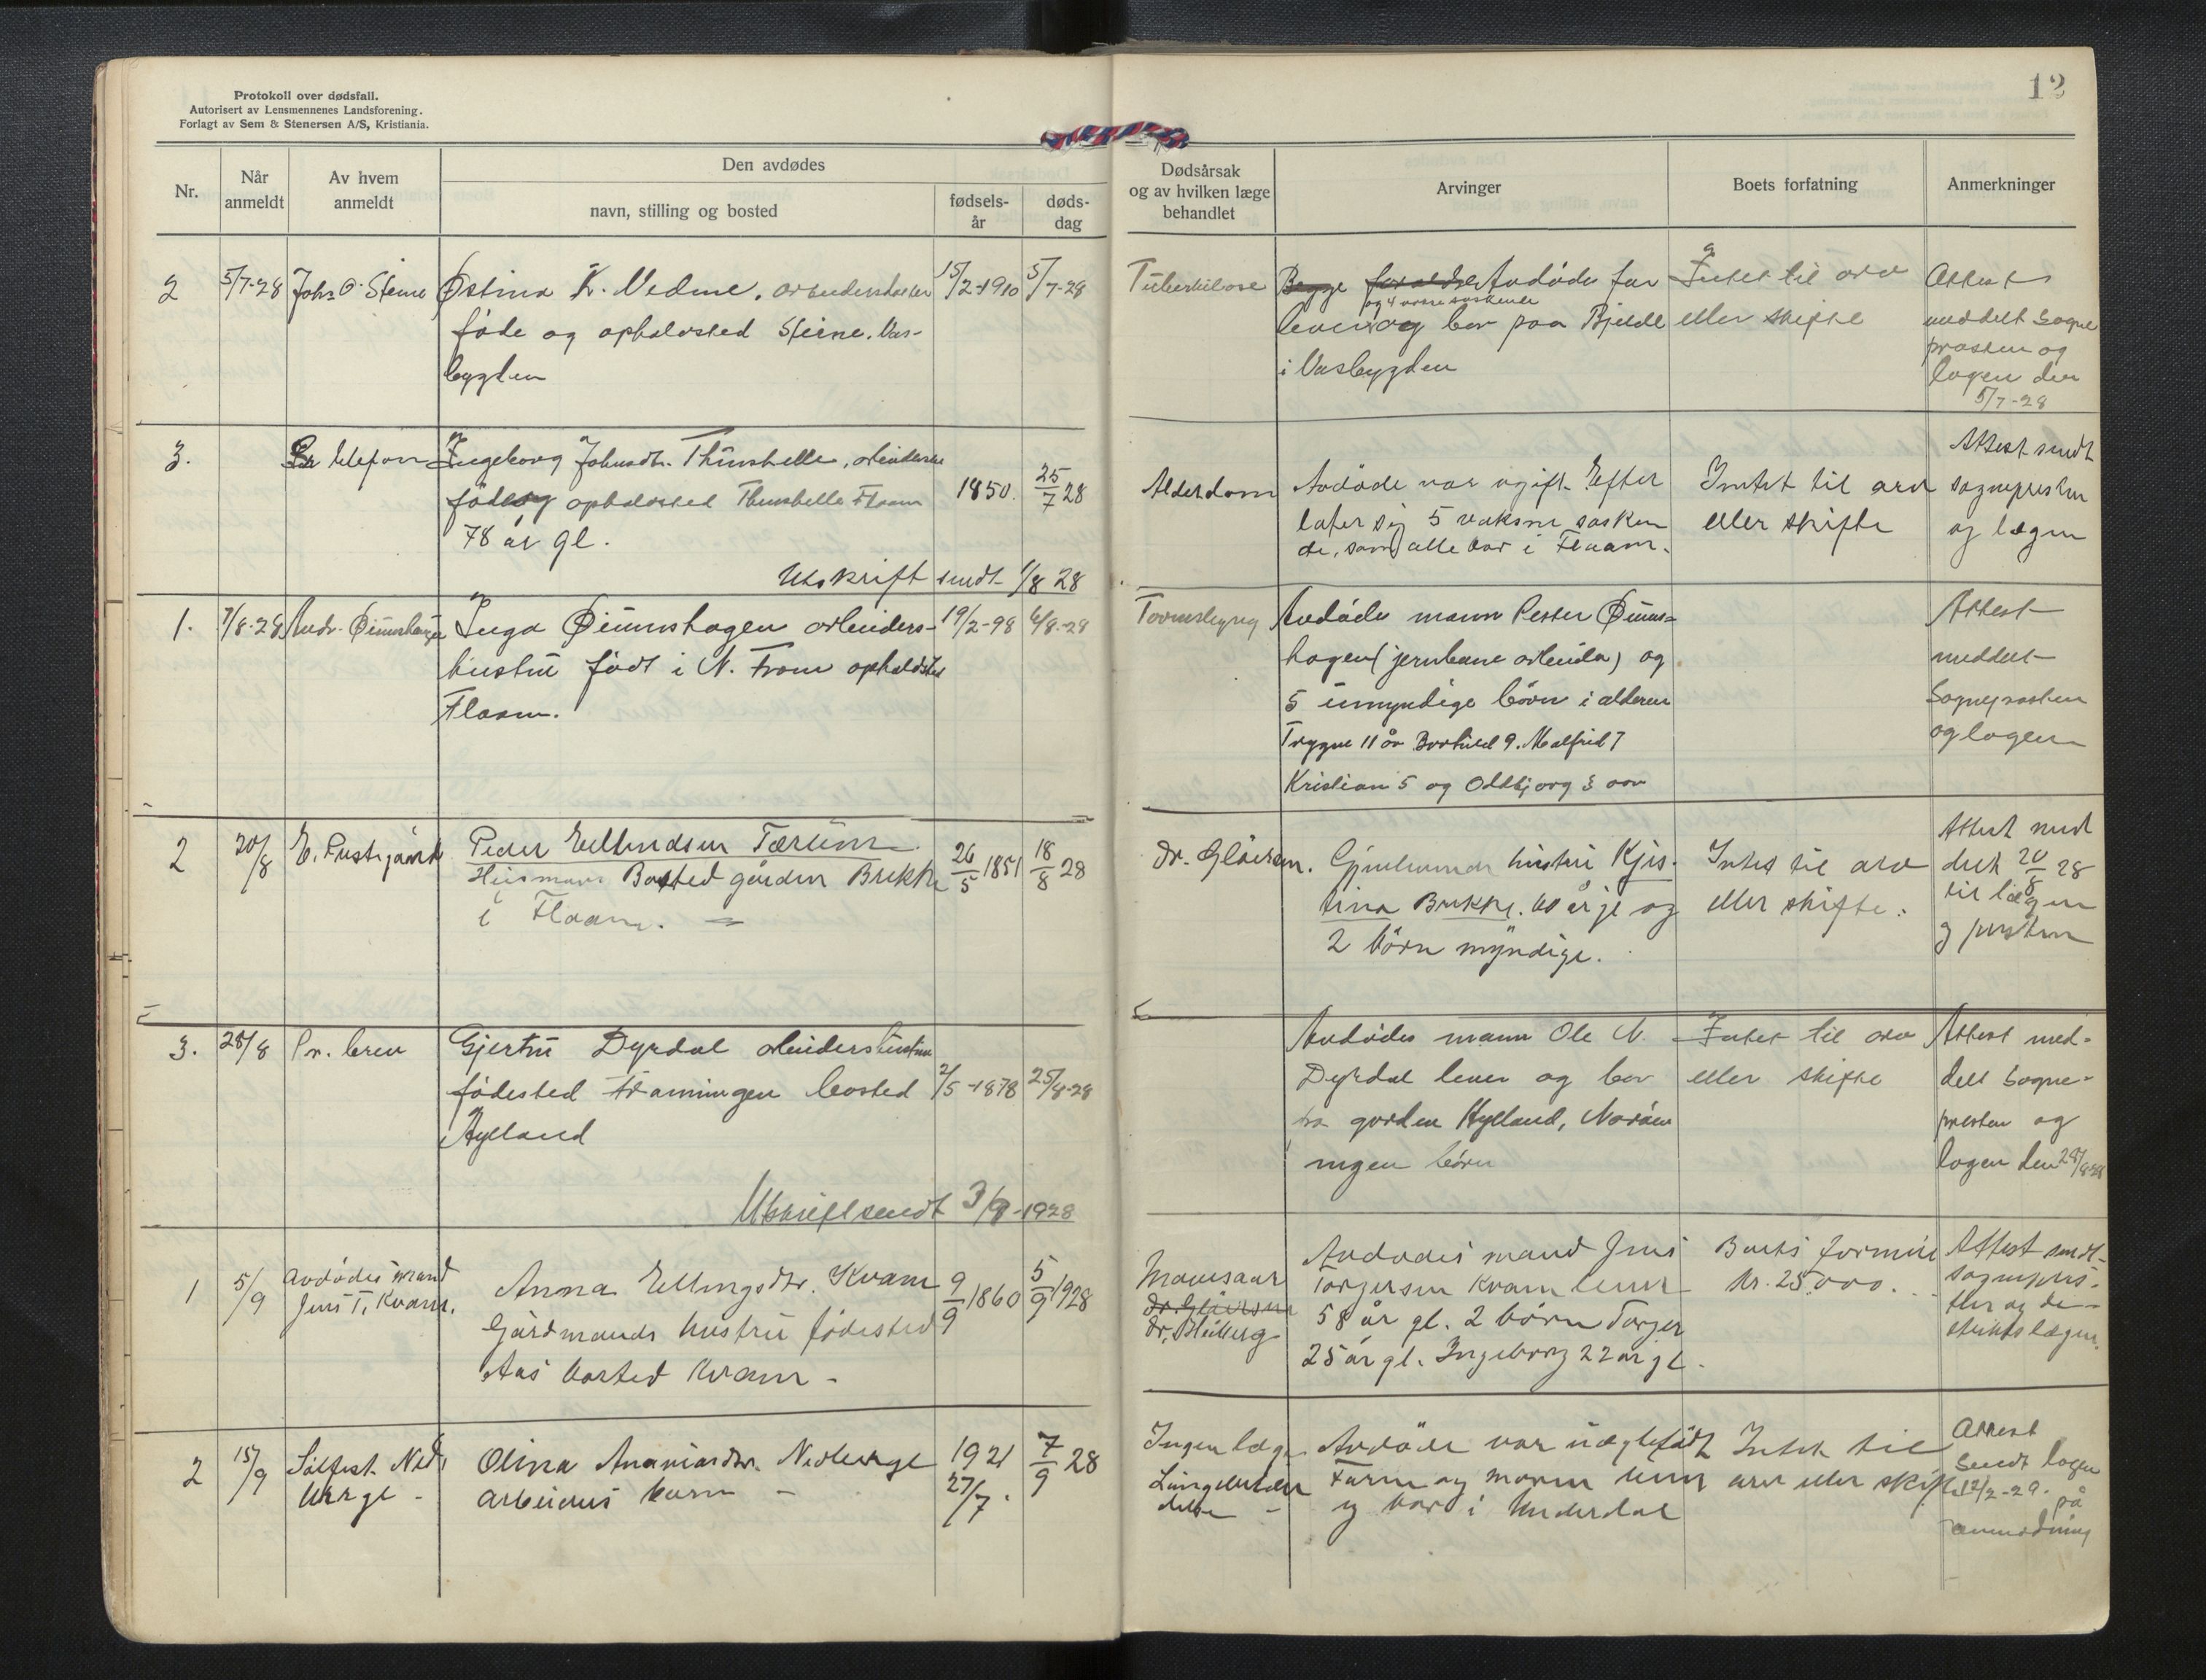 Protokoll over dødsfall.
Autorisert av Lensmennenes Landsforening.
Forlagt av Sem & Stenersen A/S, Kristiania.
12
Nr.
Når anmeldt
Av hvem anmeldt
Den avdødes
navn, stilling og bosted
fødsels-år
døds-dag
Dødsårsak og av hvilken læge behandlet
Arvinger
Boets forfatning
Anmerkninger
2 5/7-28 Joh. O. Steine Østina K. Nedme, arbeidersdatter 15/2-1910 5/7-28
føde og opholdssted Steine. Vas-
bygden
Tuberkulose
Begge foreldre Avdøde far
og 4 voksne søskende
lever og bor paa Bjelde
i Vasbygden
Intet til arv
eller skifte
Attest
meddelt Sogne
presten og
lægen den
5/7-28
3. Pr telefon Ingeborg Johnsdtr. Thunshelle, arbeiderske
føde og opholdssted Thunshelle Flaam 1850. 25/7 28
78 år gl.
Alderdom
Avdøde var ugift. Efter
later sig 5 voksne sösken
de, som alle bor i Flaam.
Intet til arv
eller skifte
Attest sendt
sognepresten
og lægen
Utskrift sendt 1/8 28
1. 7/8-28 Andr. Ø Inga arbeiders- 19/2-98 6/8-28
hustru født i N. Fron opholdsted
Flaam.
Avdøde mann Petter
hagen (jernbane arbeider) og
5 umyndige börn i alderen
Trygve 11 år Borhild 9. Malfrid 7
Kristian 5 og Oddbjørg 3 aar
Attest
meddelt
Sognepresten
og lægen
2 20/8 E. Prestegård Peder Ellendsen Tærum 26/5 1851 18/8 28
Husmann Bosted gården Brekke
i Flaam.
Dr. Gløersen.
Gjenlevende hustru Kjis-
tina Brekke. 60 år gl og
2 börn myndige.
Intet til arv
eller skifte.
Attest med
delt 20/8 28
til lægen
og presten
3. 28/8 Pr. brev Gjertru Dyrdal arbeidershustru
fødested Framningen bosted 2/5-1878 25/8-28
Hylland
Avdødes mann Ole N.
Dyrdal lever og bor
pa garden Hylland,
ingen börn
Intet til arv
eller skifte
Attest med-
delt Sogne-
presten og
lægen den 28/8-28
Utskrift sendt 3/9-1928
1 5/9 Avdødes mand
Jens T. Kvam.
Anna Ellingsdtr. Kvam 9/9 1860 5/9 1928
Gårdmands hustru fødested
Aas bosted Kvam -
Mavesaar
Dr. Gløersen
Avdødes mand Jens
Torgersen Kvam lever
58 år gl. 2 börn Torger
25 år gl. Ingeborg 22 år gl.
Boets formue
kr. 25,000.
Attest sendt
sognepres-
ten og di-
striktslægen.
2 15/9 Sålfest Ned
berge -
Olina Ananiasdtr. Nedberge 1921 7/9 28
Arbeiders barn - 27/7.
Ingen læge
Lungebeten
delse -
Avdöde var uægtefödt
Faren og moren lever
og bor i Underdal
Intet til
arv eller skifte
Attest
sendt lægen
12/2-29. på
anmodning